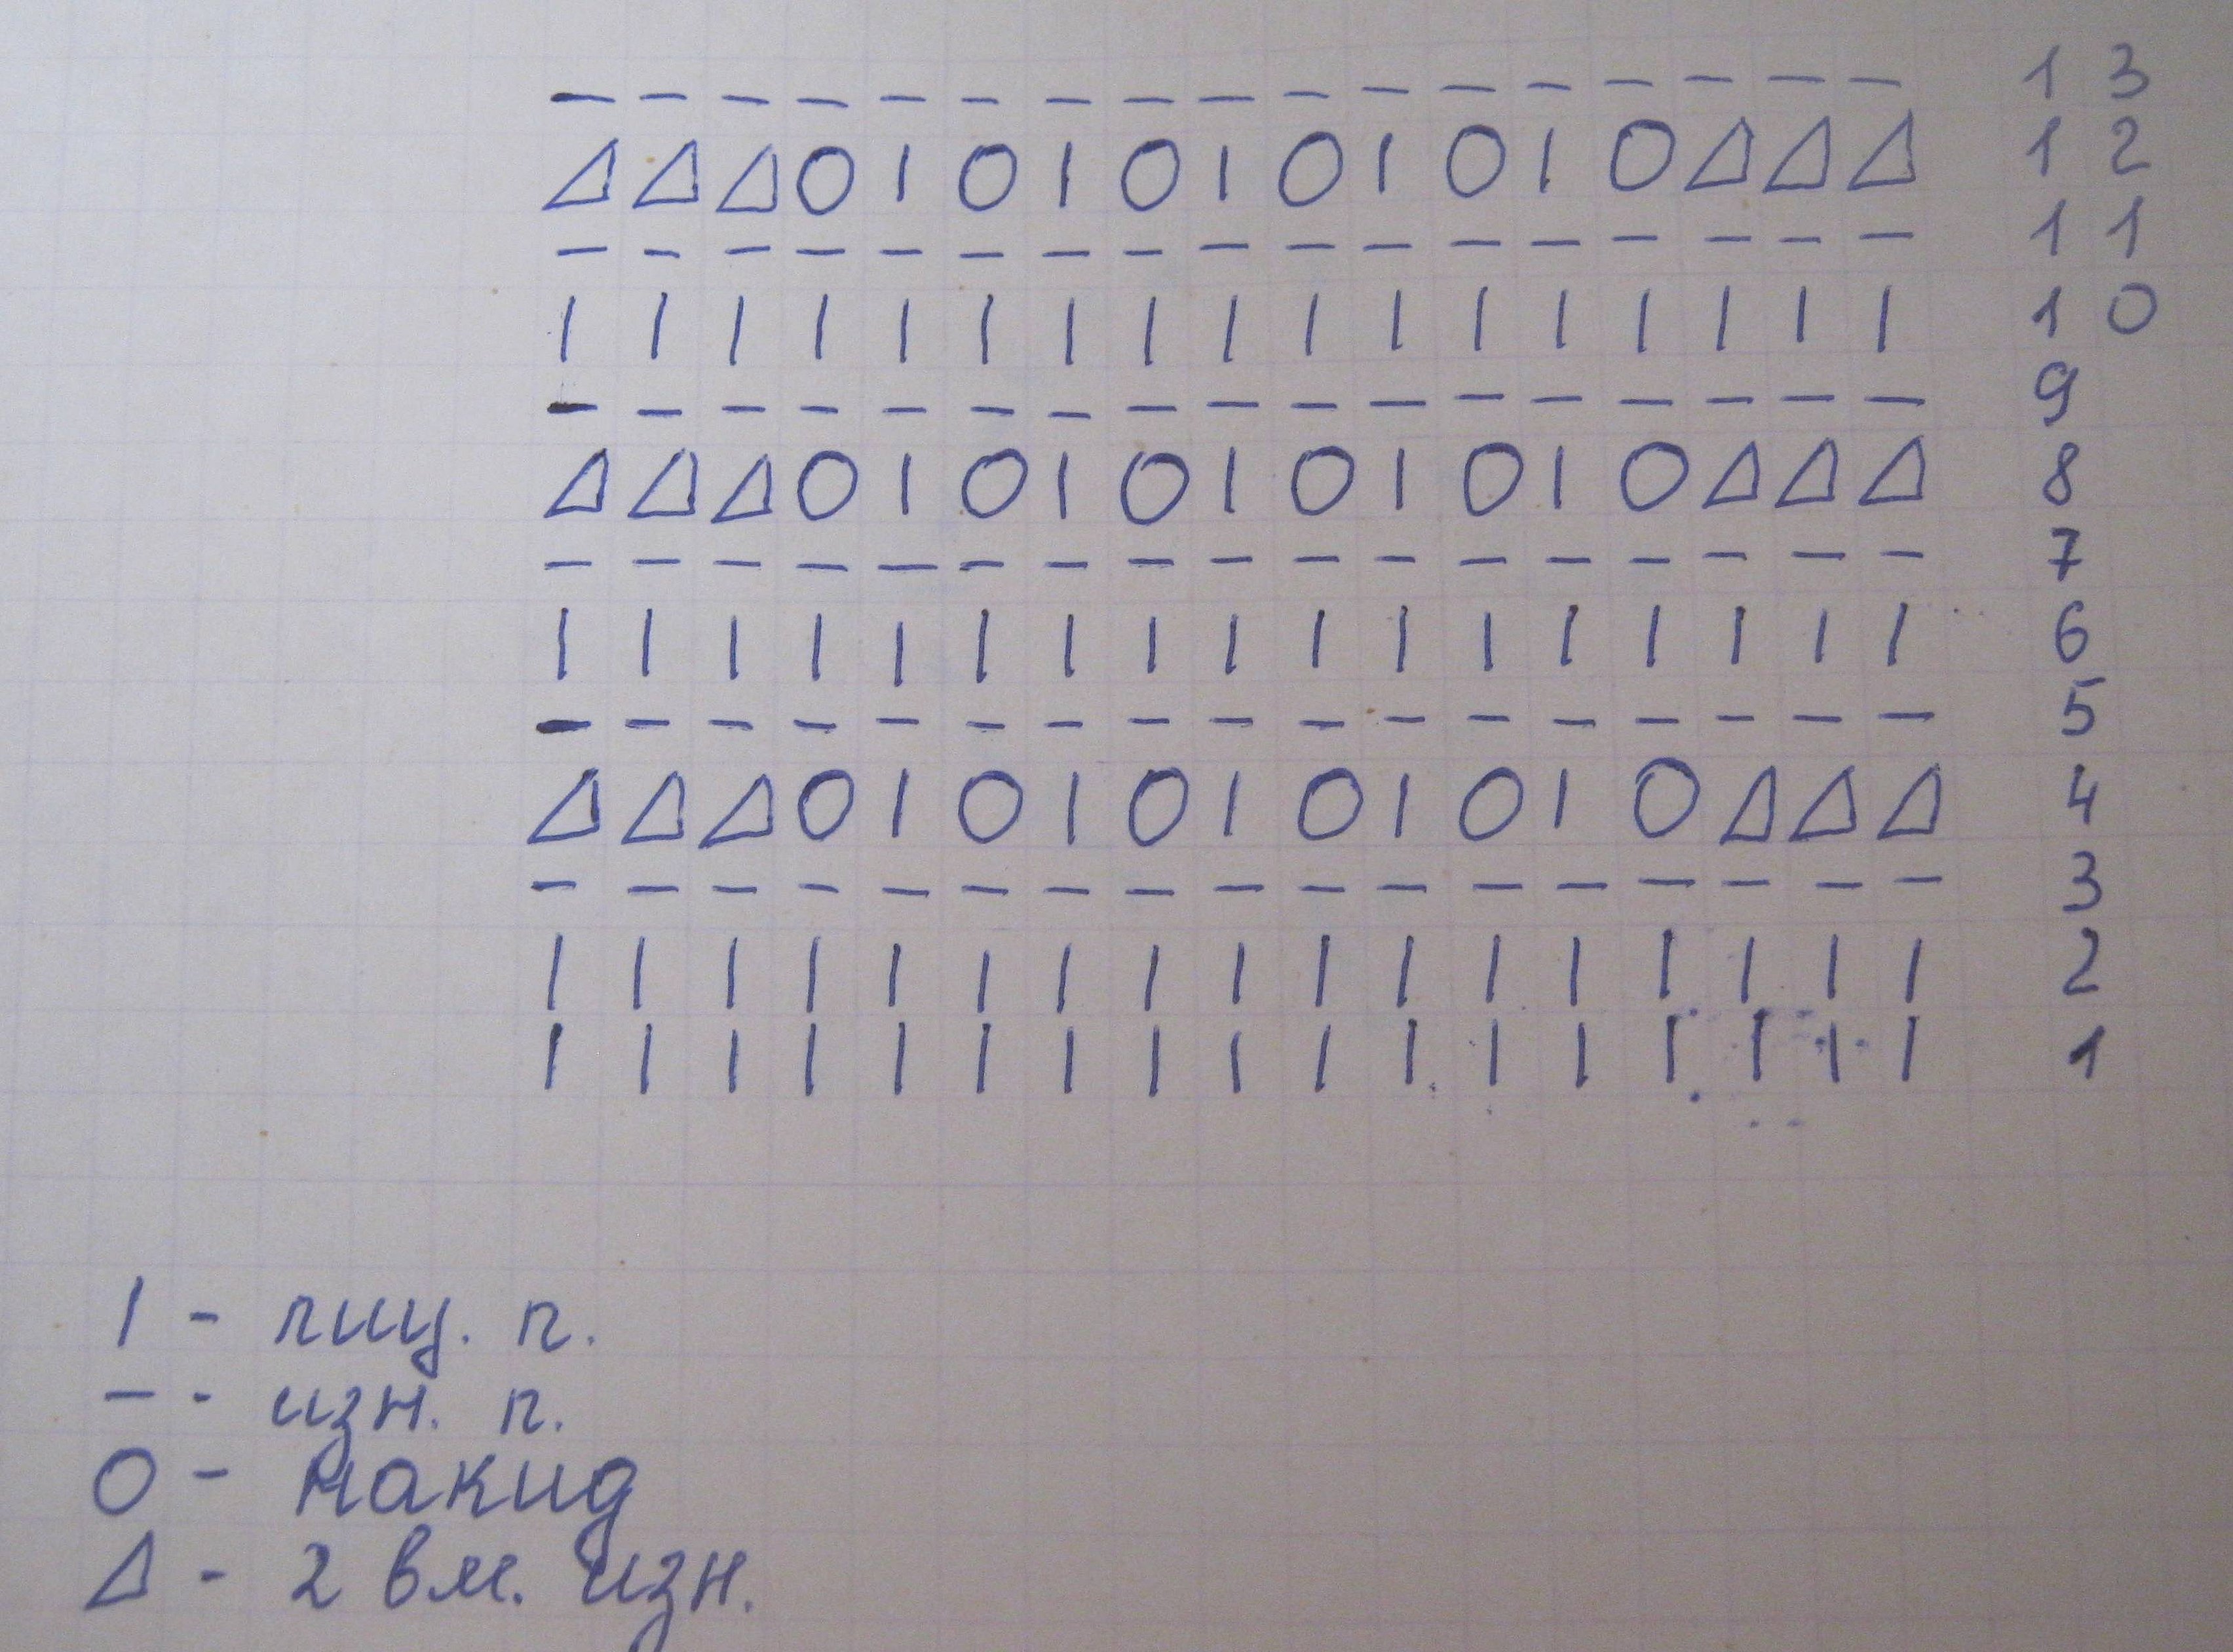 — — — — — — — — — — — — — — — — — 13
Δ Δ Δ O I O I O I O I O I O Δ Δ Δ 12
— — — — — — — — — — — — — — — — — 11
I I I I I I I I I I I I I I I I I 10
— — — — — — — — — — — — — — — — — 9
Δ Δ Δ O I O I O I O I O I O Δ Δ Δ 8
— — — — — — — — — — — — — — — — — 7
I I I I I I I I I I I I I I I I I 6
— — — — — — — — — — — — — — — — — 5
Δ Δ Δ O I O I O I O I O I O Δ Δ Δ 4
— — — — — — — — — — — — — — — — — 3
I I I I I I I I I I I I I I I I I 2
I I I I I I I I I I I I I I I I I 1
I - лиц. п.
— - изн. п.
O - накид
Δ - 2 вм. изн.